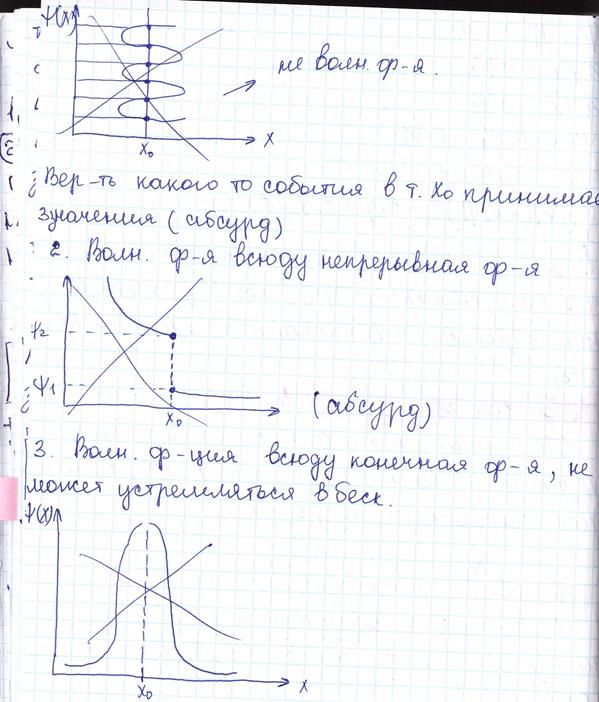 Ψ(x)
не волн. ф-я.
x
x₀
Вер-ть какого то события в т. x₀ принимае
значения (абсурд)
2. Волн. ф-я всюду непрерывная ф-я
Ψ2
Ψ1
(абсурд)
x₀
3. Волн. ф-ция всюду конечная ф-я, не
может устремляться в беск.
Ψ(x)
x₀
x